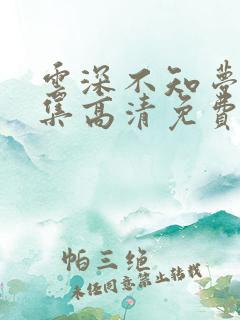 云深不知梦
集高清免费
帕三绝
未经同意禁止转载